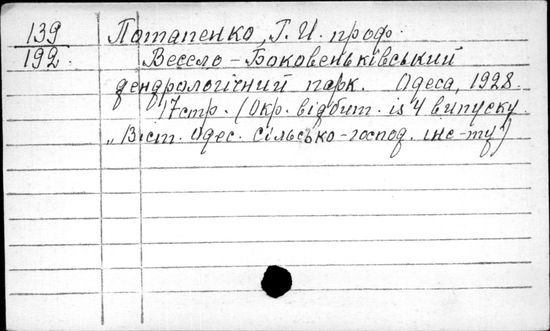 139 Потапенко, Г. И. проф.
192. Весело-Боковеньківський
дендрологічний парк. Одеса, 1928.
17 стр. (Окр. відбит. із 4 випуску
„Віст. Одес. сільсько-господ. інс-ту")